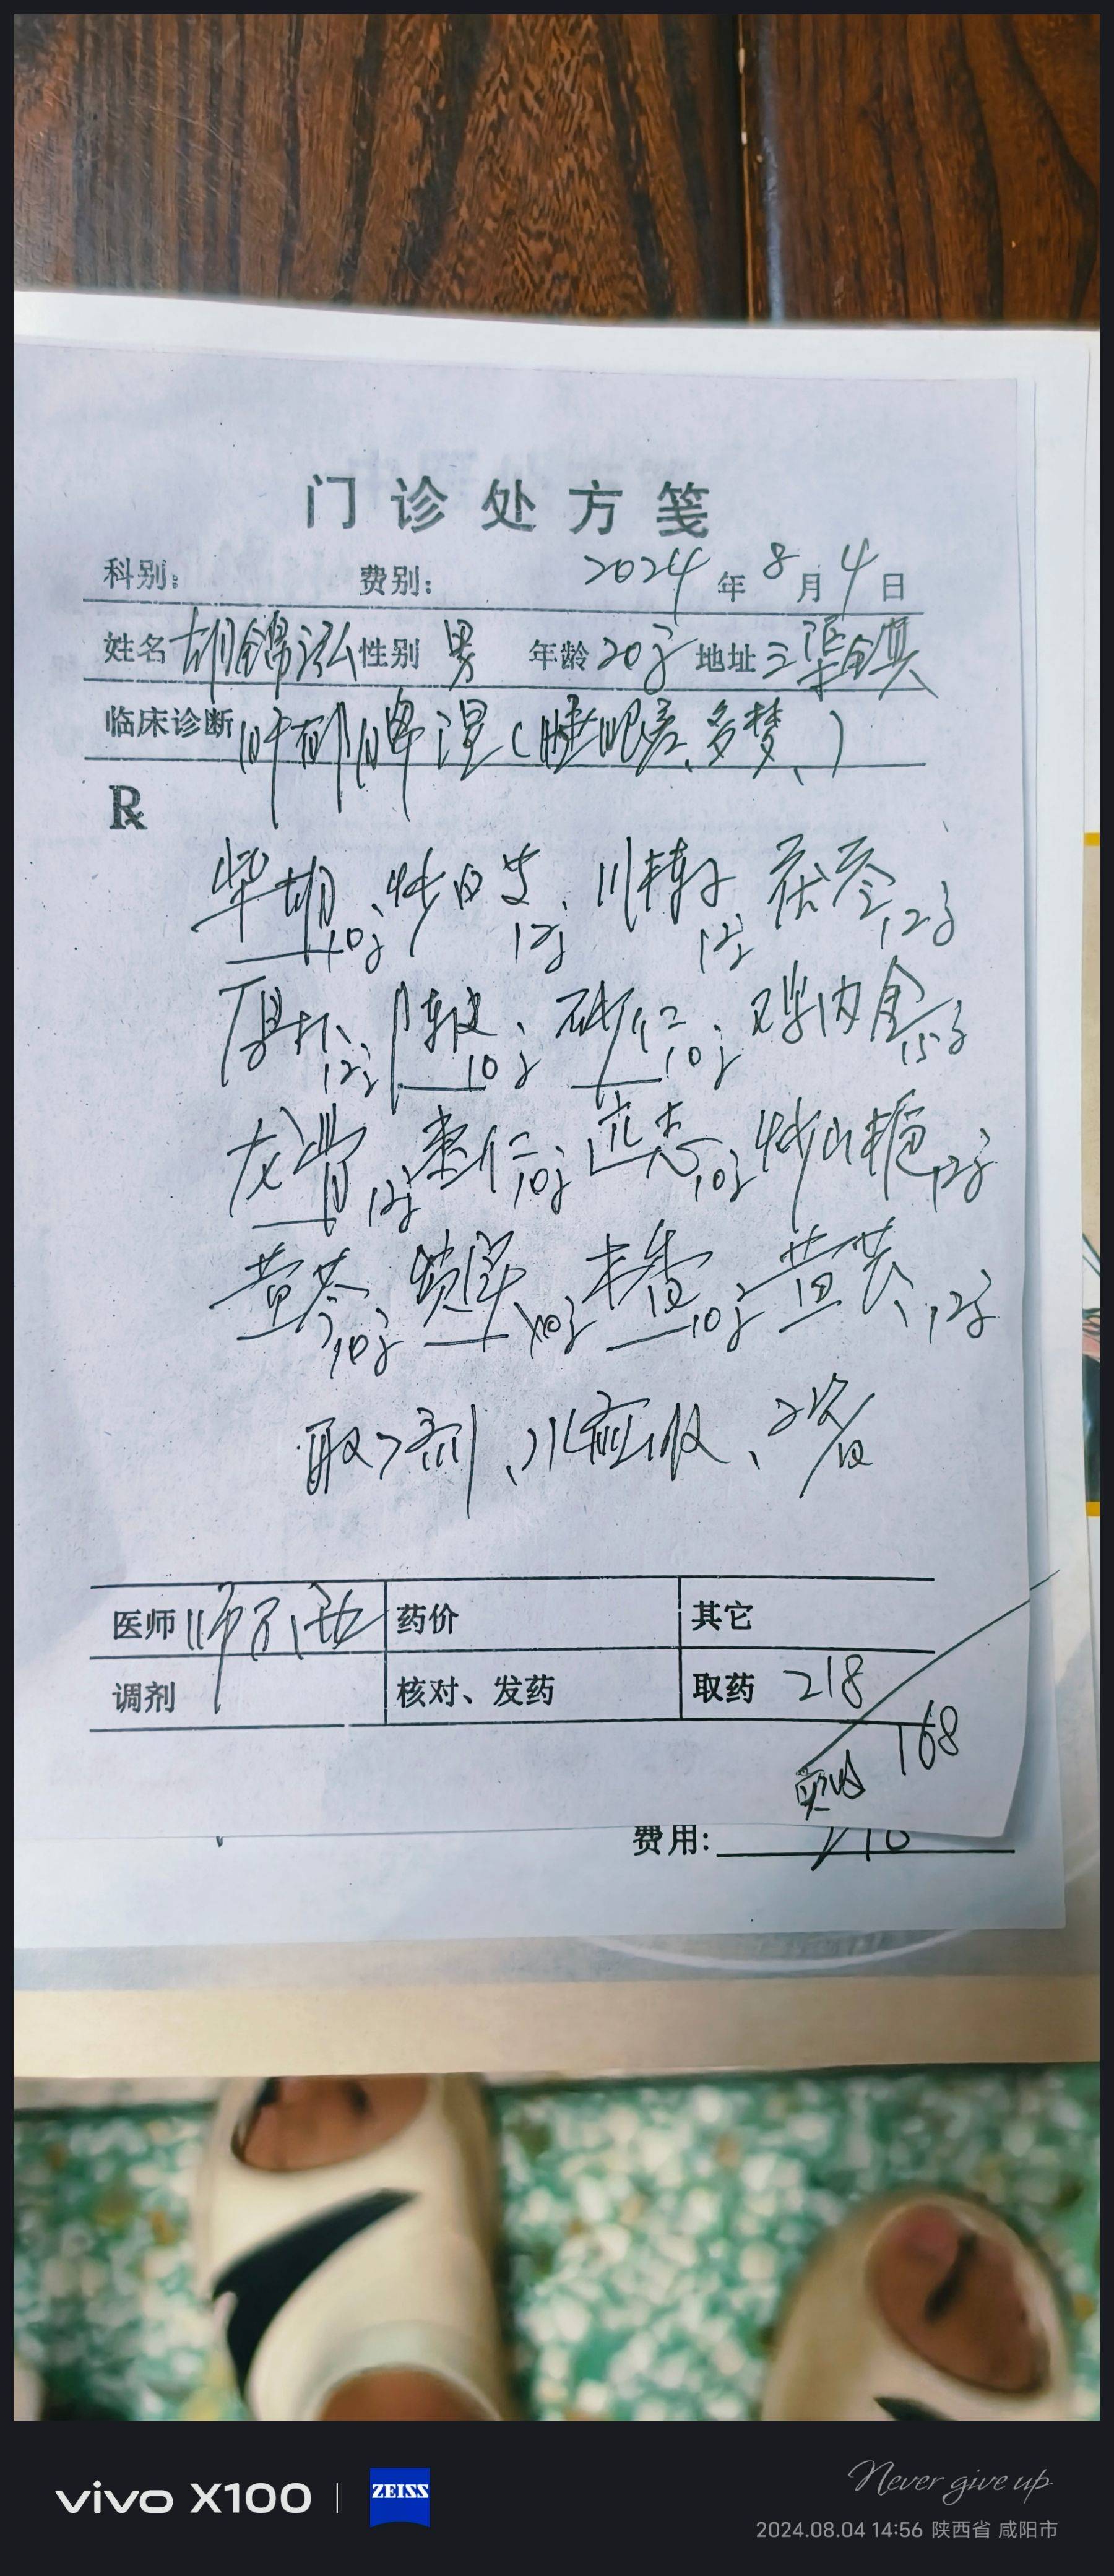 门诊处方笺
科别: 费别: 2024年8月4日
姓名 胡锦泓 性别 男 年龄 20岁 地址 三渠镇
临床诊断 肝郁脾湿(睡眠差、多梦、)
R
柴胡10g、炒白芍12g、川楝子12g 茯苓12g
厚朴12g 陈皮10g、砂仁10g、鸡内金15g
龙骨12g 枣仁10g 远志10g 炒山栀12g
黄芩10g 10g 木香10g 黄芪12g
取7剂、水煎服、
医师 药价 其它
调剂 核对、发药 取药 218
实收 168
费用:
vivo X100 ZEISS
Never give up
2024.08.04 14:56 陕西省 咸阳市